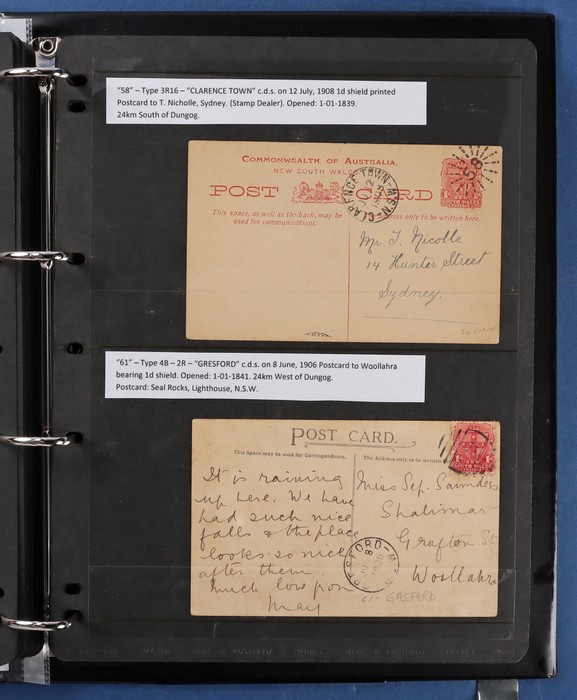 "58" – Type 3R16 – "CLARENCE TOWN" c.d.s. on 12 July, 1908 1d shield printed
Postcard to T. Nicholle, Sydney. (Stamp Dealer). Opened: 1-01-1839.
24km South of Dungog.
COMMONWEALTH OF AUSTRALIA.
NEW SOUTH WALES
POST CARD
This space, as well as the back, may be
used for communications.
ess only to be written here.
CLARENCE TOWN N.S.W
58
Mr T. Nicolle
14 Hunter Street
Sydney.
"61" – Type 4B – 2R – "GRESFORD" c.d.s. on 8 June, 1906 Postcard to Woollahra
bearing 1d shield. Opened: 1-01-1841. 24km West of Dungog.
Postcard: Seal Rocks, Lighthouse, N.S.W.
POST CARD.
This Space may be used for Correspondence.
The Address only to be written
It is raining
up here. We have
had such nice
falls & the place
looks so nice
after them
Much love from
May
Miss Sep. Saunders
Shalimar
Grafton St
Woollahra
GRESFORD
61 - GRESFORD